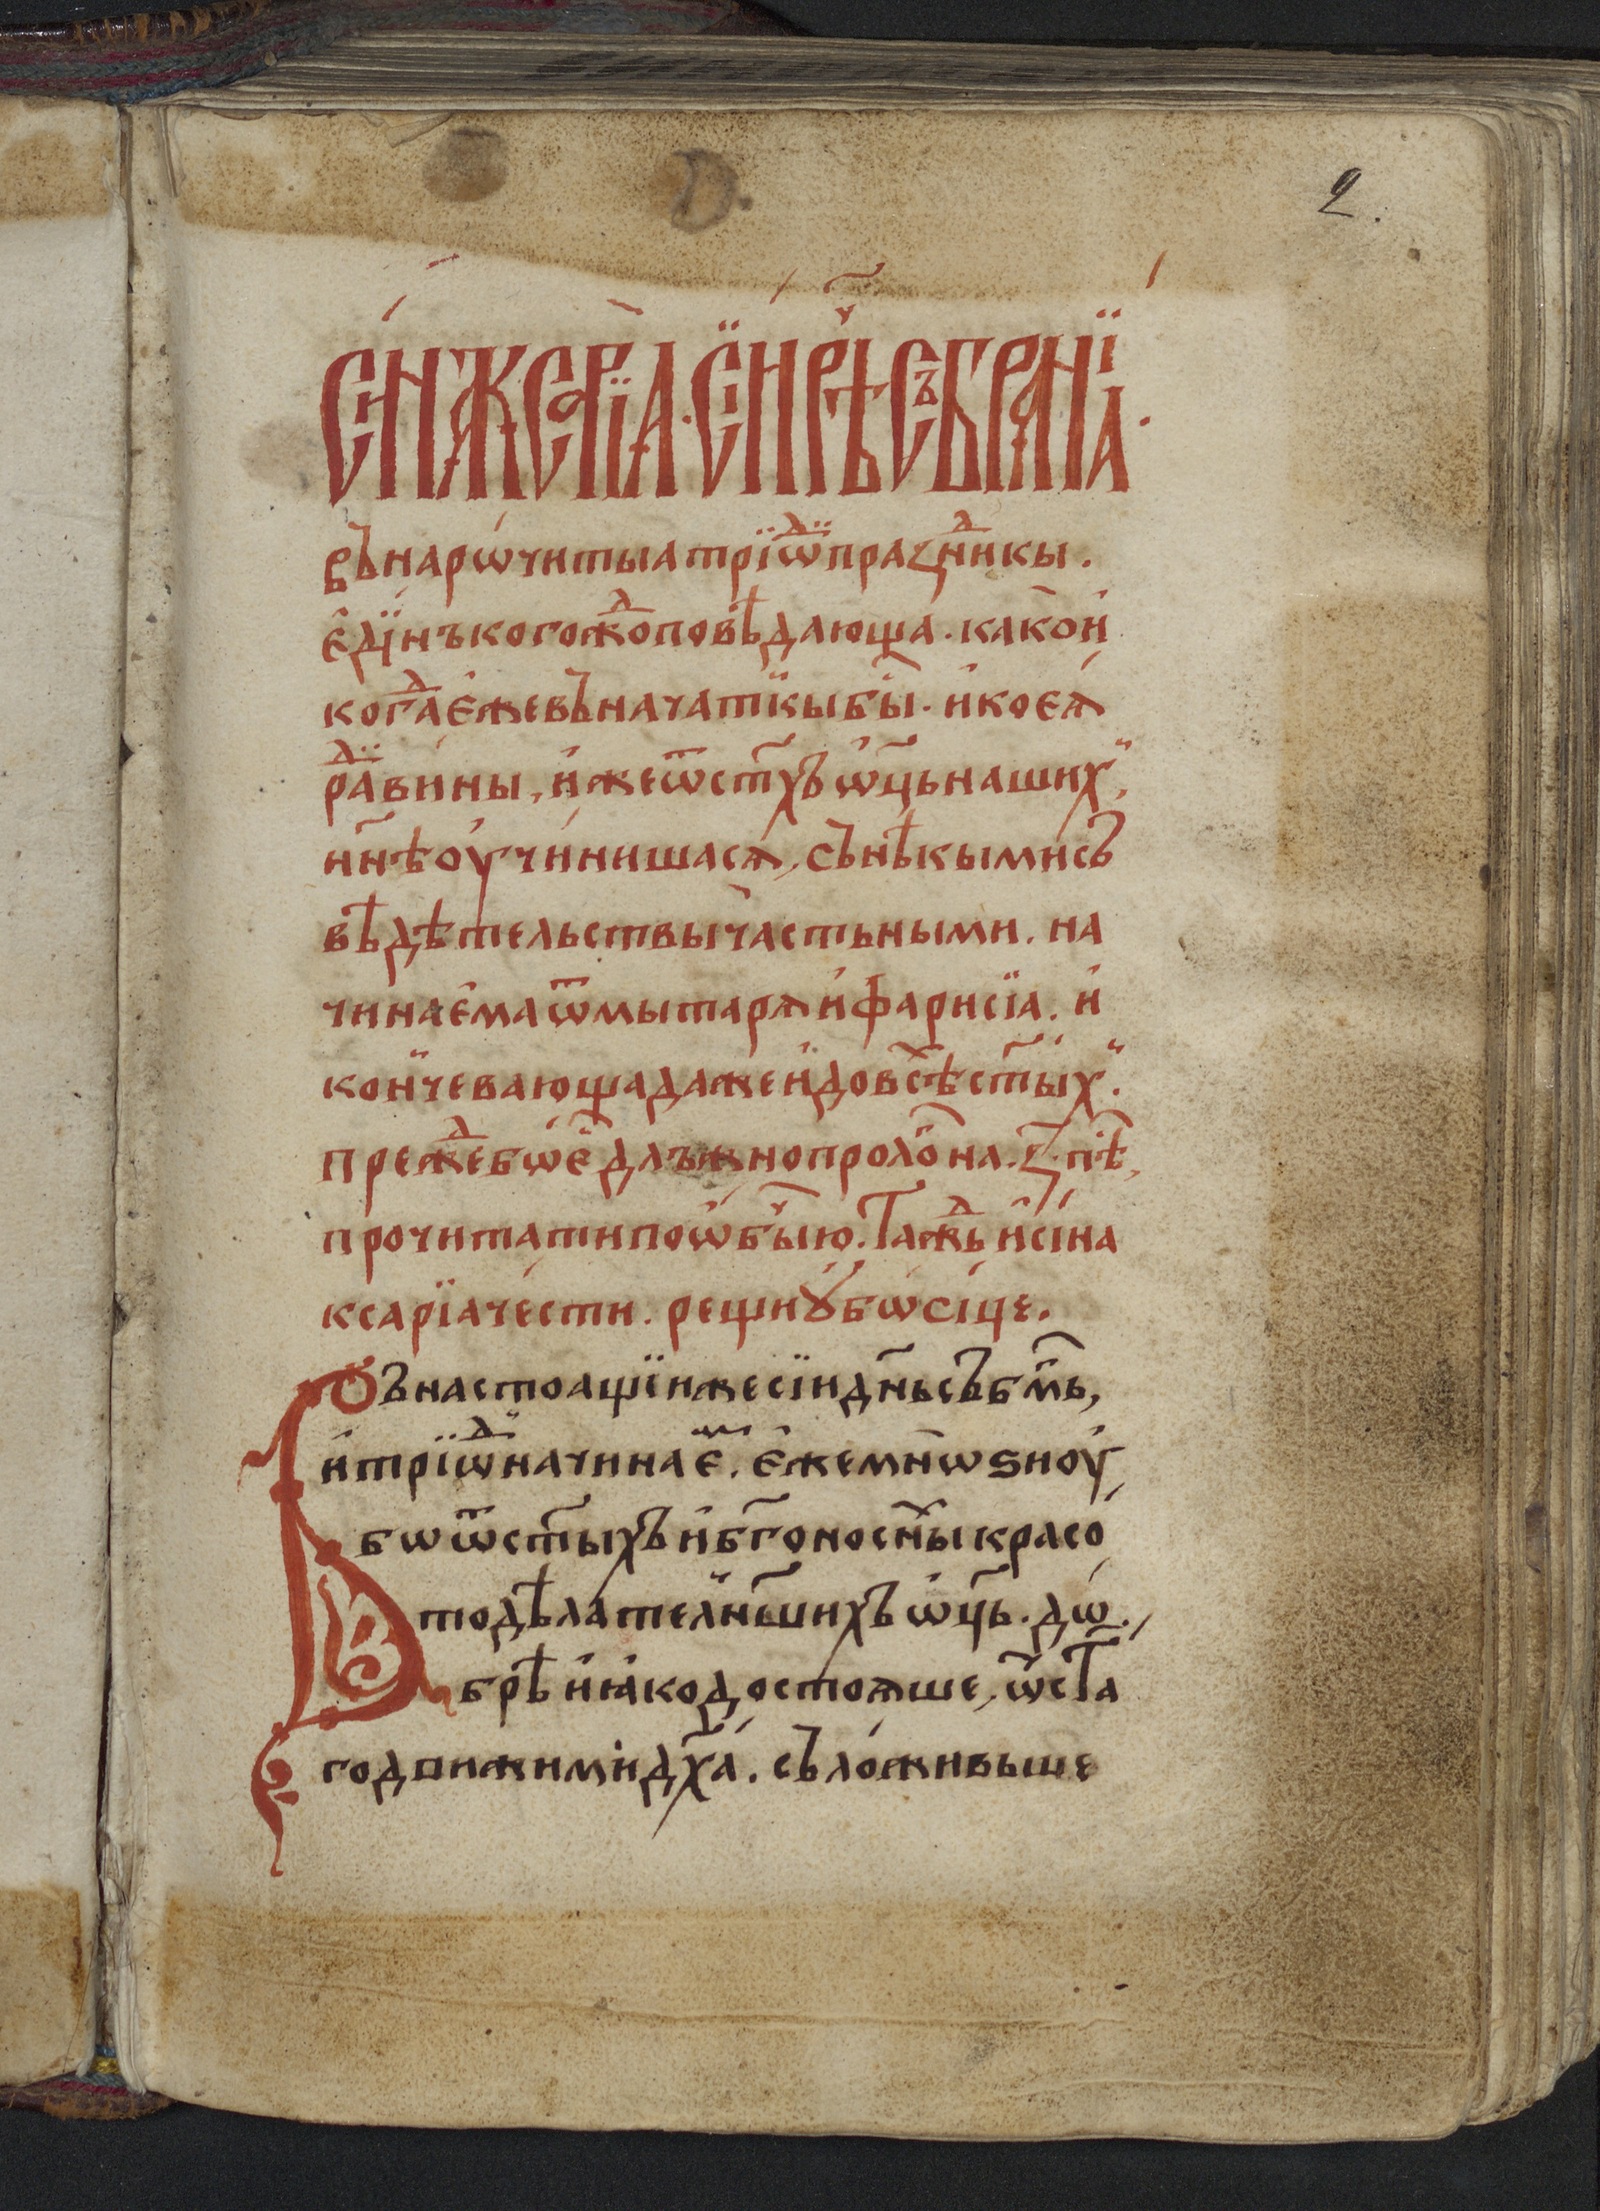 2.
СИНАѮАРЇА · СИ́РѢ СЪБРАНЇА ·
въ нарѡ́читыа трїѡⷣ праꙁⷣникы .
є҆ди́нъ когоⷤдо повѣ́дающа . како и҆
когⷣа є҆же въ начатїкы бы̀ . и҆ коеѧ
рⷣади вины , и҆же ѿ ст҃хъ ѡ҆ц҃ь нашиⷯ ,
нн҃ѣ оу҆чи́нишасѧ , съ нѣ́кыми съ
вѣдѣ́тельствы частьными . на
чинае́ма ѿ мытарѧ и҆ фарисїа . и҆
кон́чевающа даже и҆ до всѣ́ ст҃ы́хъ .
прежⷣе бѡ є҆ длъжно проло́ на . ꙃ҃ . пѣ ,
прочитати по ѡ҆бы́ю . Таⷤ и҆ сїна
ксарїа че́сти . рещи ѹ҆бѡ сі́це .
Въ настоащїи же сїи дн҃ь съ бм҃ь ,
и҆ трїѡⷣ начинаеⷨ . є҆же мнѡѕи оу҆
бѡ ѿ ст҃ыхъ и҆ бг҃оносны красо
тодѣ́лателнѣ́шихъ ѡ҆ц҃ь . дѡ
брѣ́ и҆ ꙗ҆ко достоѧше , ѿ ст҃а
го движими дх҃а . съло́живыше